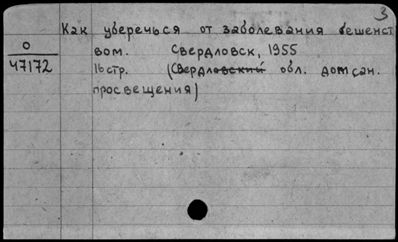 3
Как уберечься от заболевания бешенст
вом. Свердловск, 1955
16 стр. (Свердловский обл. дом сан.
просвещения)
0
47172